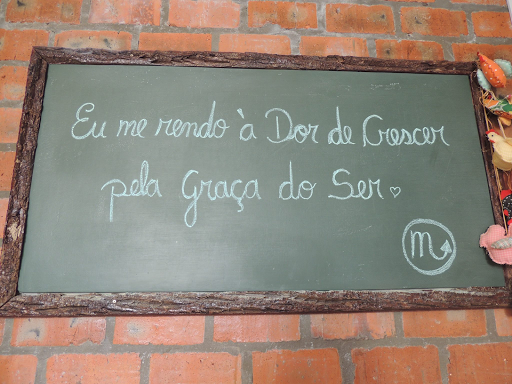 Eu me rendo à Dor de Crescer
pela Graça do Ser ♡
♏